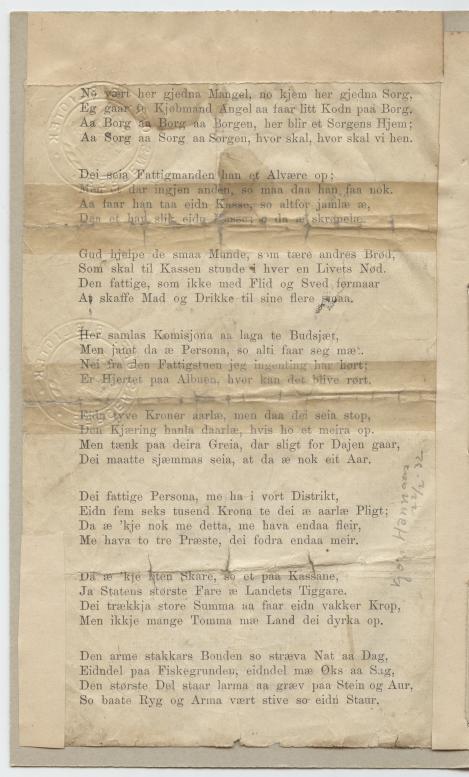 No vært her gjedna Mangel, no kjem her gjedna Sorg,
Eg gaar te Kjøbmand Angel aa faar litt Kodn paa Borg.
Aa Borg aa Borg aa Borgen, her blir et Sorgens Hjem;
Aa Sorg aa Sorg aa Sorgen, hvor skal, hvor skal vi hen.
Dei seia Fattigmanden han et Alvære op;
Men et dar ingjen anden, so maa daa han faa nok.
Aa faar han taa eidn Kasse, so altfor jamlæ æ,
Daa et han slik eidn Kasse, o da æ skrøpelæ.
Gud hjelpe de smaa Munde, som tære andres Brød,
Som skal til Kassen stunde i hver en Livets Nød.
Den fattige, som ikke med Flid og Sved formaar
At skaffe Mad og Drikke til sine flere smaa.
Her samlas Komisjona aa laga te Budsjæt,
Men jamt da æ Persona, so alti faar seg mæt.
Nei fra den Fattigstuen jeg ingenting har hørt;
Er Hjertet paa Albuen, hvor kan det blive rørt.
Eidn tyve Kroner aarlæ, men daa dei seia stop,
Den Kjæring hanla daarlæ, hvis ho et meira op.
Men tænk paa deira Greia, dar sligt for Dajen gaar,
Dei maatte sjæmmas seia, at da æ nok eit Aar.
Dei fattige Persona, me ha i vort Distrikt,
Eidn fem seks tusend Krona te dei æ aarlæ Pligt;
Da æ 'kje nok me detta, me hava endaa fleir,
Me hava to tre Præste, dei fodra endaa meir.
Da æ 'kje liten Skare, so et paa Kassane,
Ja Statens største Fare æ Landets Tiggare.
Dei trækkja store Summa aa faar eidn vakker Krop,
Men ikkje mange Tomma mæ Land dei dyrka op.
Den arme stakkars Bonden so stræva Nat aa Dag,
Eidndel paa Fiskegrunden, eidndel mæ Øks aa Sag,
Den største Del staar larma aa græv paa Stein og Aur,
So baate Ryg og Arma vært stive so eidn Staur.
22/2 32